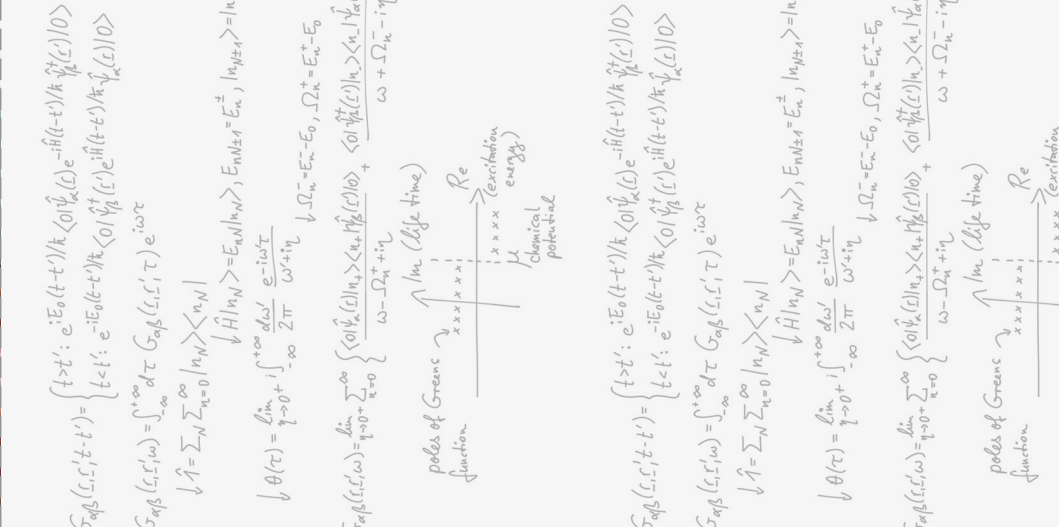 G_αβ(r,r',t-t') = { t>t': e^{iE₀(t-t')/ħ} <0|ψ̂_α(r)e^{-iĤ(t-t')/ħ} ψ̂_β^†(r')|0>
t<t': e^{-iE₀(t-t')/ħ} <0|ψ̂_β^†(r')e^{iĤ(t-t')/ħ} ψ̂_α(r)|0>
G_αβ(r,r',ω) = ∫_{-∞}^{+∞} dτ G_αβ(r,r',τ) e^{iωτ}
↓ 1̂ = Σ_N Σ_{n=0}^{∞} |n_N><n_N|
↓ Ĥ|n_N> = E_{nN}|n_N>, E_{nN±1} = E_n^±, |n_{N±1}> = |n
↓ θ(τ) = lim_{η→0+} i∫_{-∞}^{+∞} dω'/2π e^{-iω'τ}/ω'+iη
↓ Ω_n^- = E_n^- - E₀, Ω_n^+ = E_n^+ - E₀
G_αβ(r,r',ω) = lim_{η→0+} Σ_{n=0}^{∞} { <0|ψ̂_α(r)|n_+><n_+|ψ̂_β^†(r')|0> / ω-Ω_n^+ + iη + <0|ψ̂_β^†(r')|n_-><n_-|ψ̂_α / ω+Ω_n^- - iη
poles of Greens
function
Im (life time)
x x x x x
Re
(excitation
energy)
x x x x
μ
chemical
potential
G_αβ(r,r',t-t') = { t>t': e^{iE₀(t-t')/ħ} <0|ψ̂_α(r)e^{-iĤ(t-t')/ħ} ψ̂_β^†(r')|0>
t<t': e^{-iE₀(t-t')/ħ} <0|ψ̂_β^†(r')e^{iĤ(t-t')/ħ} ψ̂_α(r)|0>
G_αβ(r,r',ω) = ∫_{-∞}^{+∞} dτ G_αβ(r,r',τ) e^{iωτ}
↓ 1̂ = Σ_N Σ_{n=0}^{∞} |n_N><n_N|
↓ Ĥ|n_N> = E_{nN}|n_N>, E_{nN±1} = E_n^±, |n_{N±1}> = |n
↓ θ(τ) = lim_{η→0+} i∫_{-∞}^{+∞} dω'/2π e^{-iω'τ}/ω'+iη
↓ Ω_n^- = E_n^- - E₀, Ω_n^+ = E_n^+ - E₀
G_αβ(r,r',ω) = lim_{η→0+} Σ_{n=0}^{∞} { <0|ψ̂_α(r)|n_+><n_+|ψ̂_β^†(r')|0> / ω-Ω_n^+ + iη + <0|ψ̂_β^†(r')|n_-><n_-|ψ̂_α / ω+Ω_n^- - iη
poles of Greens
function
Im (life time)
x x x x x
Re
(excitation